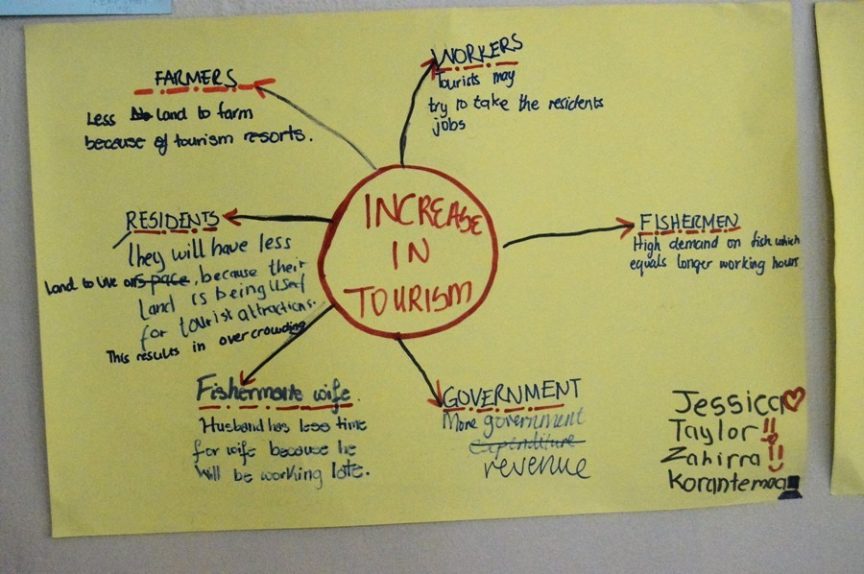 INCREASE
IN
TOURISM
FARMERS
Less land to farm
because of tourism resorts.
WORKERS
Tourists may
try to take the residents
jobs
FISHERMEN
High demand on fish which
equals longer working hours
GOVERNMENT
More government
expenditure
revenue
Fishermans wife
Husband has less time
for wife because he
will be working late.
RESIDENTS
They will have less
land to live on space, because their
land is being used
for tourist attractions.
This results in overcrowding
Jessica
Taylor!!
Zahirra!!
Korantemaa